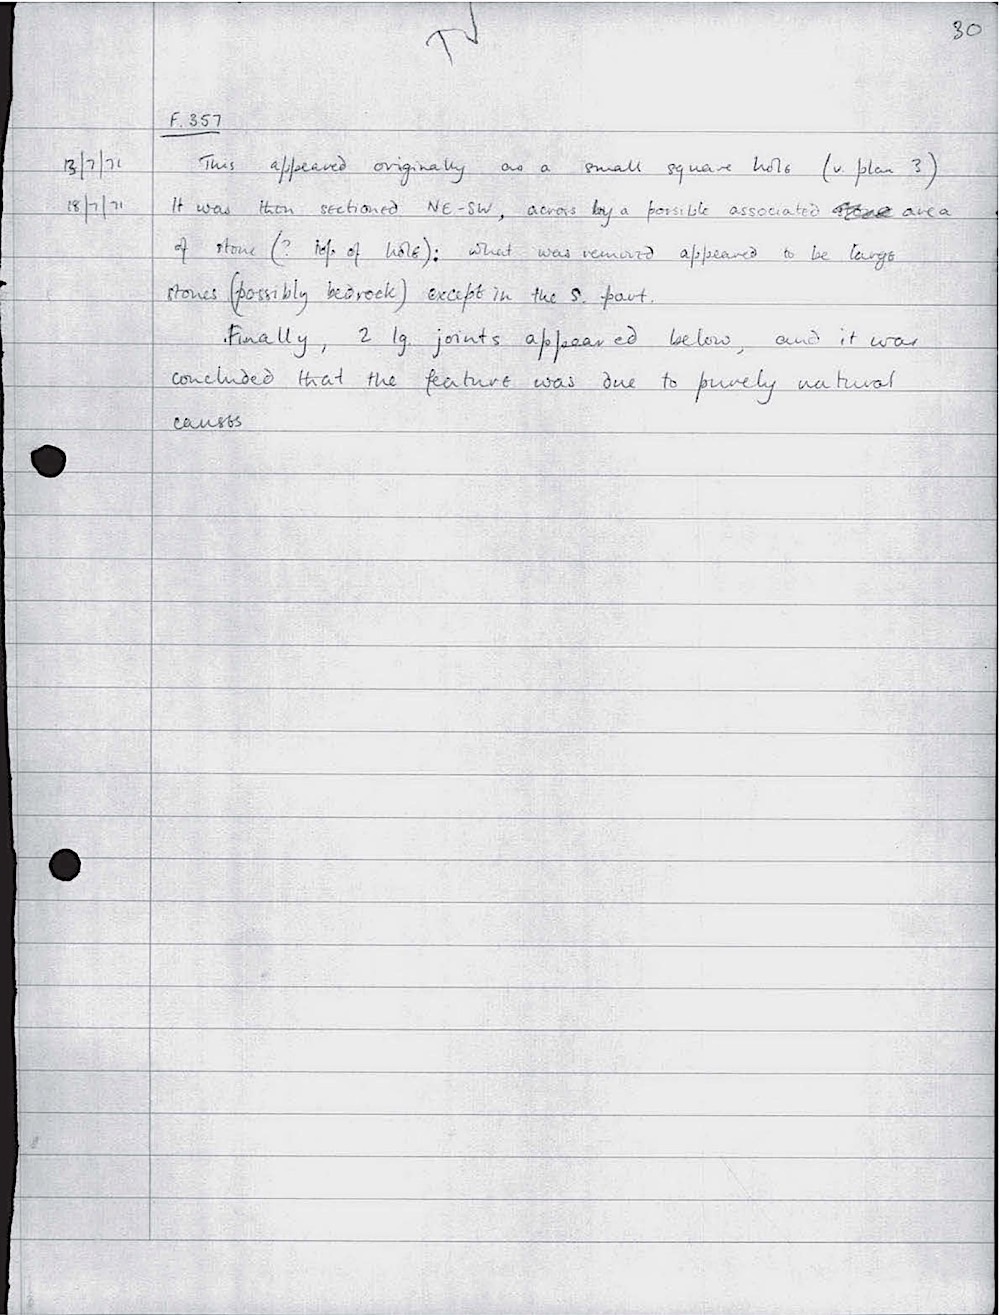 30
F. 357
13/7/71 This appeared originally as a small square hole (v. plan 3)
18/7/71 It was then sectioned NE-SW, across by a possible associated stone area
of stone (? top of hole); what was removed appeared to be large
stones (possibly bedrock) except in the S. part.
Finally, 2 lg. joints appeared below, and it was
concluded that the feature was due to purely natural
causes